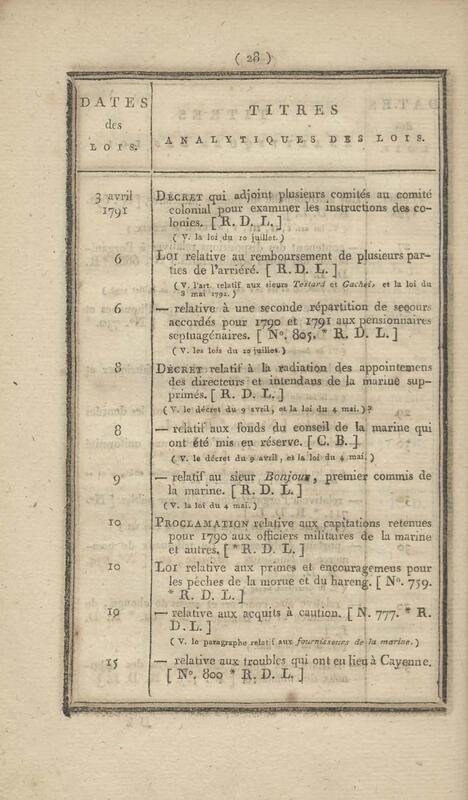 ( 28 )
DATES
des
LOIS.
TITRES
ANALYTIQUES DES LOIS.
3 avril
1791
DÉCRET qui adjoint plusieurs comités au comité
colonial pour examiner les instructions des co-
lonies. [ R. D. L. ]
( V. la loi du 10 juillet. )
6
LOI relative au remboursement de plusieurs par-
ties de l'arriéré. [ R. D. L. ]
( V. l'art. relatif aux sieurs Testard et Gachet, et la loi du
8 mai 1792. )
6
— relative à une seconde répartition de secours
accordés pour 1790 et 1791 aux pensionnaires
septuagénaires. [ N°. 805. * R. D. L. ]
( V. les lois du 20 juillet. )
8
DÉCRET relatif à la radiation des appointemens
des directeurs et intendans de la marine sup-
primés. [ R. D. L. ]
( V. le décret du 9 avril, et la loi du 4 mai. ) ?
8
— relatif aux fonds du conseil de la marine qui
ont été mis en réserve. [ C. B. ]
( V. le décret du 9 avril, et la loi du 4 mai. )
9
— relatif au sieur Bonjour, premier commis de
la marine. [ R. D. L. ]
( V. la loi du 4 mai. )
10
PROCLAMATION relative aux capitations retenues
pour 1790 aux officiers militaires de la marine
et autres. [ * R. D. L. ]
10
LOI relative aux primes et encouragemens pour
les pêches de la morue et du hareng. [ N°. 759.
* R. D. L. ]
10
— relative aux acquits à caution. [ N. 777. * R.
D. L. ]
( V. le paragraphe relatif aux fournisseurs de la marine. )
15
— relative aux troubles qui ont eu lieu à Cayenne.
[ N°. 800 * R. D. L. ]